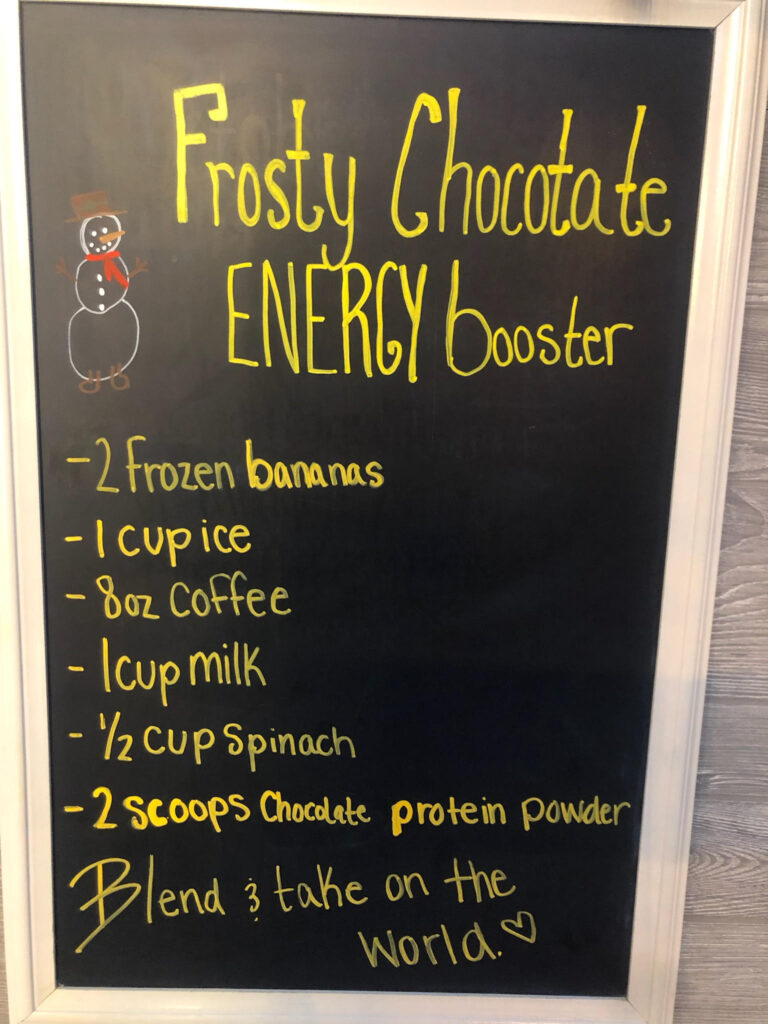 Frosty Chocotate
ENERGY booster
- 2 Frozen bananas
- 1 cup ice
- 8oz Coffee
- 1 cup milk
- 1/2 cup spinach
- 2 scoops Chocolate protein powder
Blend & take on the
world. ♡